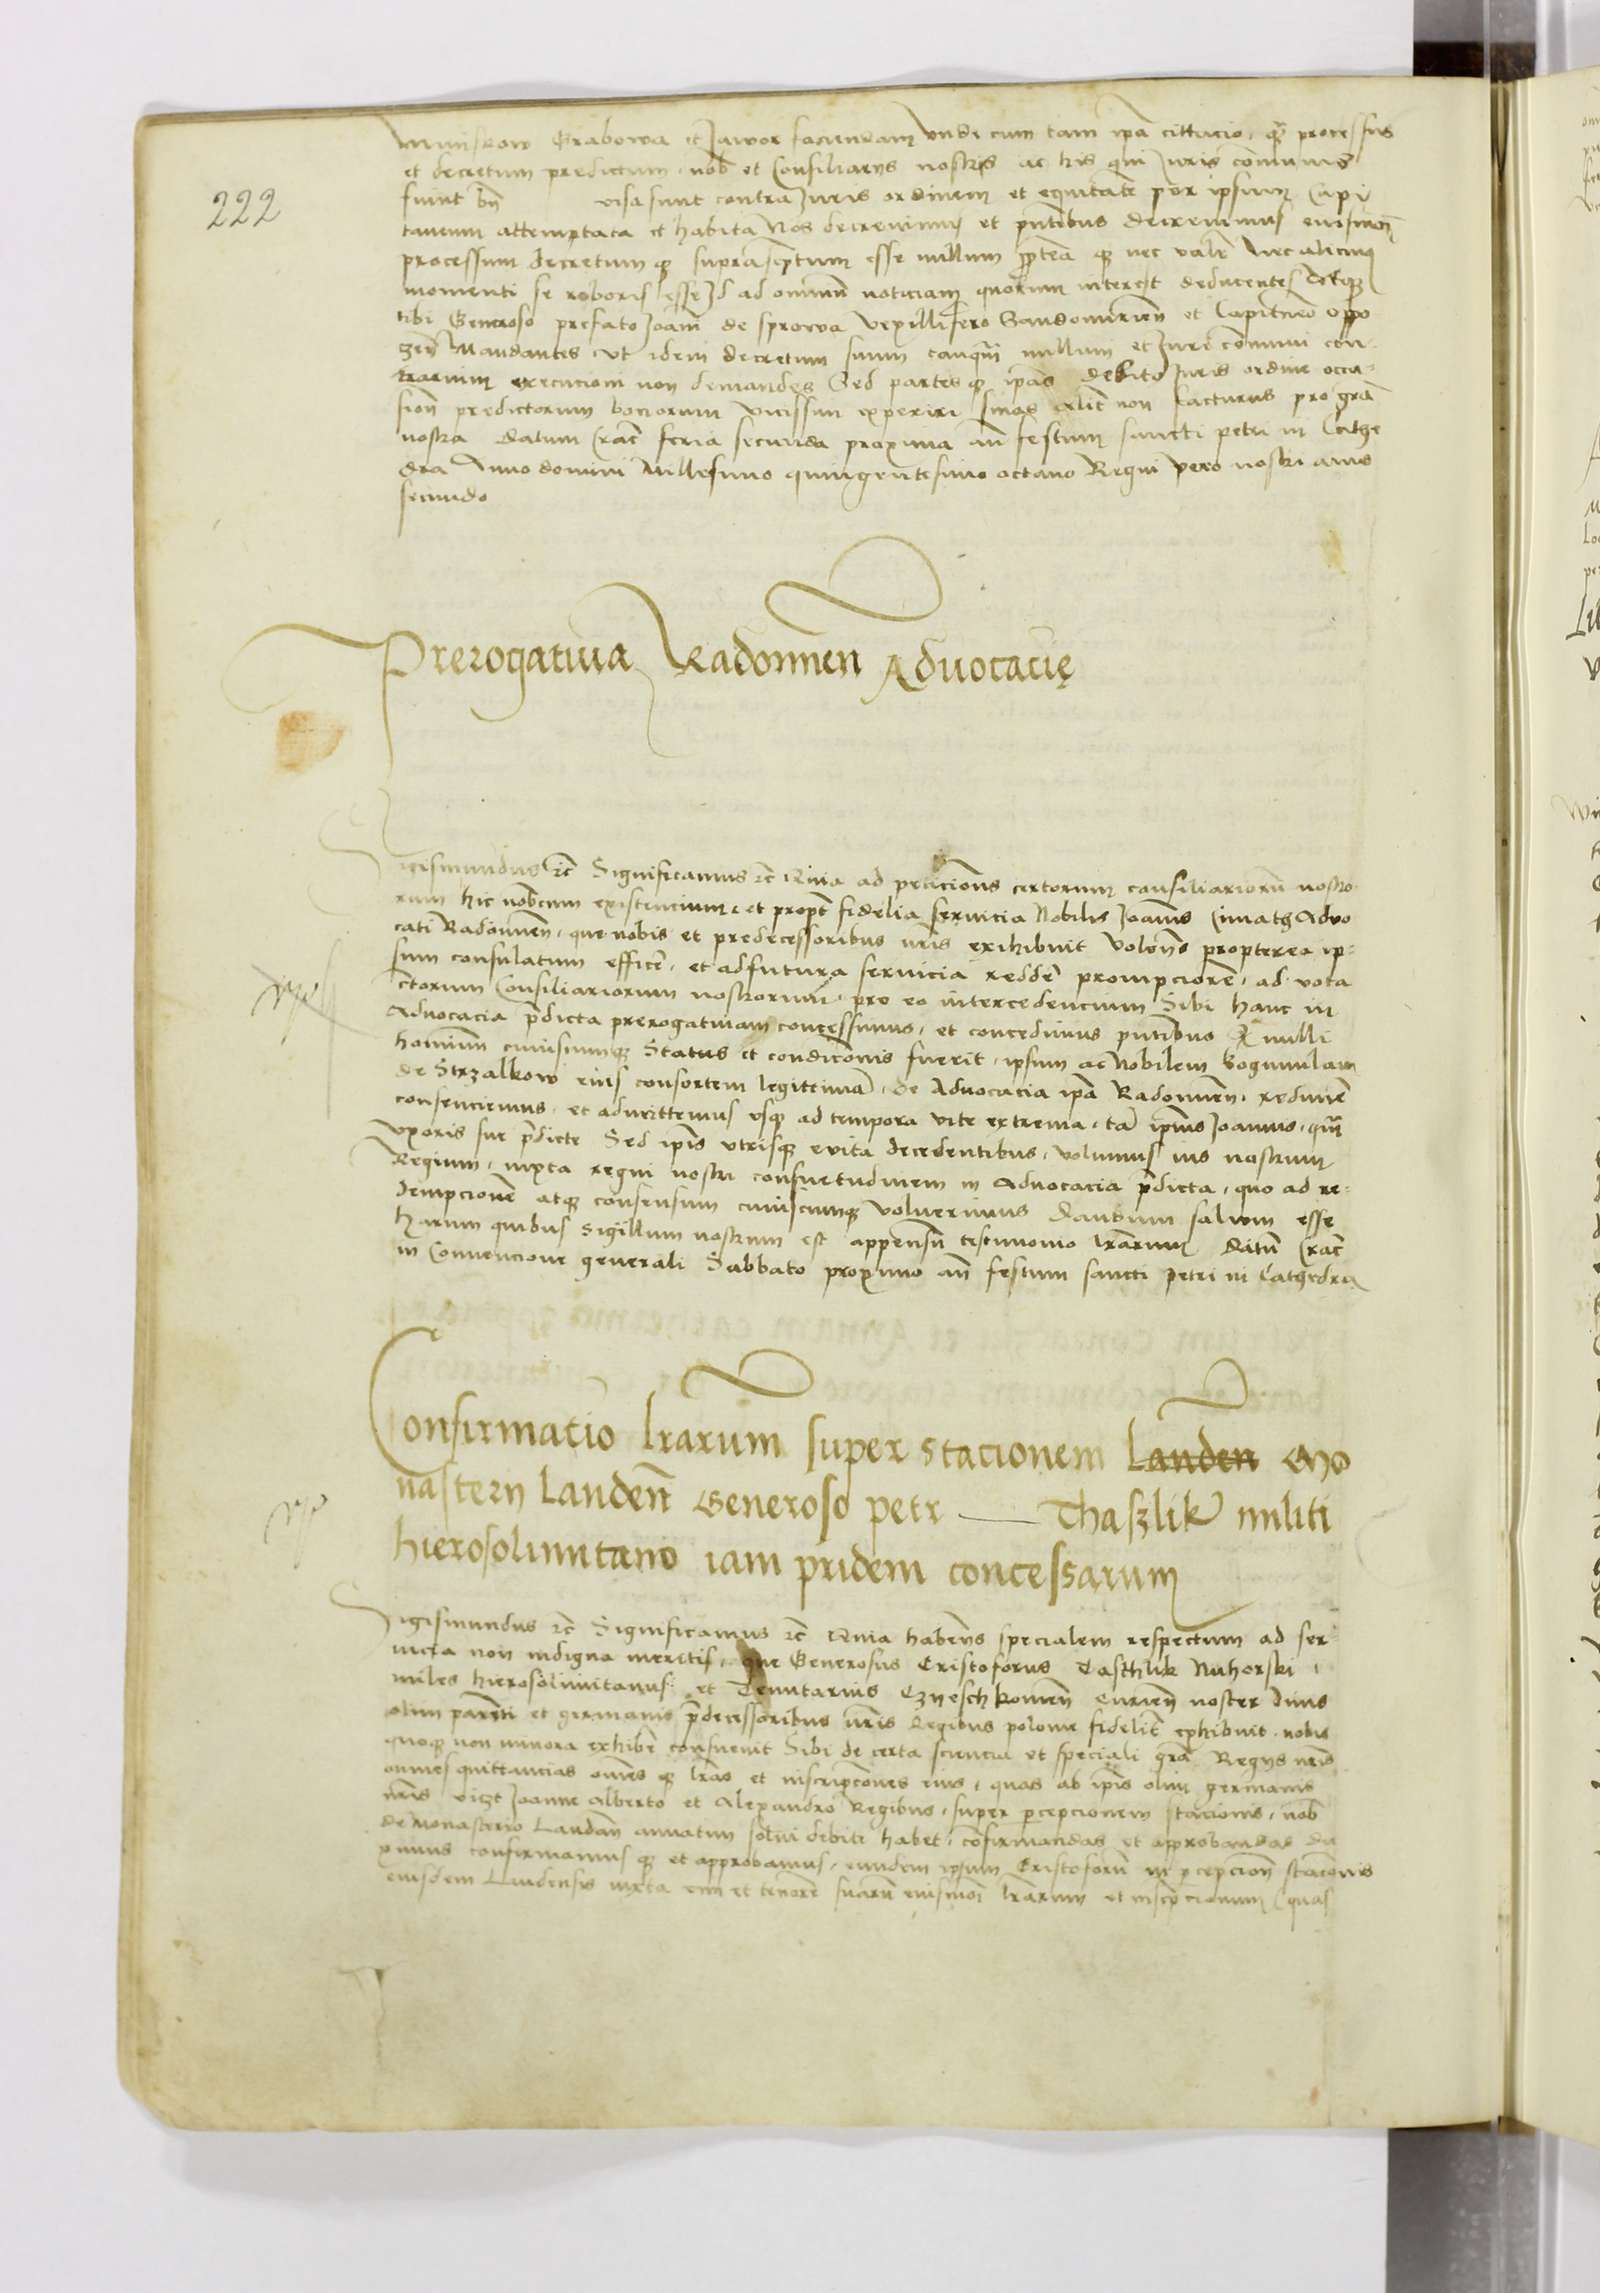 222
Grabowa et Jawor faciendam Unde cum tam ipa cittacio, qȝ processus
et decretum predictum, nob et Consiliarys nostris ac his qui Juris comunis
fuint visa sunt contra Juris ordinem et equitate per ipsum Capi
taneum attemptata et habita Nos decrevimus et pntibus decrevimus
processum decretum qȝ suprascptum esse nullum qȝ nec valere Nec alicuius
momenti se roboris esse Id ad omnium noticiam quorum interest deducentes
tibi Generoso prefato Joann de Sprowa Vexillifero Sandomirien et Capitneo Oppo
zen Mandantes Ut idem decretum suum tanqm nullum et Jure comuni con-
trarium execucioni non demandes Sed partes qȝ ipas debito Juris ordine occa-
sion predictorum bonorum vicissim experiri sinas Alit non facturus pro gra
nostra Datum Crac feria secunda proxima an festum sancti petri in Cathe
dra Anno domini Millesimo quingentesimo octavo Regni vero nostri anno
secundo
Prerogativa Radomien Advocacie
Sigismundus rc Significamus rc Quia ad peticiones certorum consiliariorum nostro
rum hic nobcum existencium, et propt fidelia servicia Nobilis Joannis Advo
cati Radomien, que nobis et predecessoribus nris exihibuit Volens propterea ip-
sum consulatum efficere, et ad futura servicia reddere prompciorem, ad vota
ctorum Consiliariorum nostrorum, pro eo intercedencium Sibi hanc in
Advocacia pdicta prerogativam concessimus, et concedimus pntibus Q nulli
hominum cuiuscumqȝ Status et condicionis fuerit, ipsum ac Nobilem Bogumilam
de Strzalkow eius consortem legittimam, de Advocacia ipa Radomien, redimere
consenciemus, et admittemus usqȝ ad tempora vite extrema, tam ipius Joannis, qm
Uxoris sue pdicte Sed ipis utrisqȝ e vita decedentibus, volumus ius nostrum
Regium, iuxta regni nostri consuetudinem in Advocacia pdicta, quo ad re-
dempcionem atqȝ consensum cuiuscumqȝ voluerimus dandum salvum esse
Harum quibus Sigillum nostrum est appensum testimonio lrarum Datum Crac
in Convencione generali Sabbato proximo an festum sancti petri in Cathedra
Confirmatio lrarum super stacionem landen Mo
nastery landen Generoso petr — Thaszlik militi
hierosolimitano iam pridem concessarum
Sigismundus rc Significamus rc Quia habens specialem respectum ad ser-
vicia non indigna meritis, que Generosus Cristoforus Tasthlik Nuhorski,
miles hierosolimitanus et Tenutarius curien noster divis
olim parenti et germanis pdecessoribus nris Regibus polonie fidelit exhibuit, nobis
quoqȝ non minora exhibere consuevit Sibi de certa sciencia et speciali gra Regys nris
omnes quittancias omes qȝ lras et inscripciones eius, quas ab ipis olim germanis
nris vizt Joanne Alberto et Alexandro Regibus, super percepcionem stacionis, nob
de Monasterio Landen annatim solvi debite habet, confirmandas et approbandas du
ximus confirmamus qȝ et approbamus, eundem ipsum Cristoforum in percepcione stacionis
eiusdem Lindensis iuxta vim et tenorem suarum lrarum et inscripcionum (quas